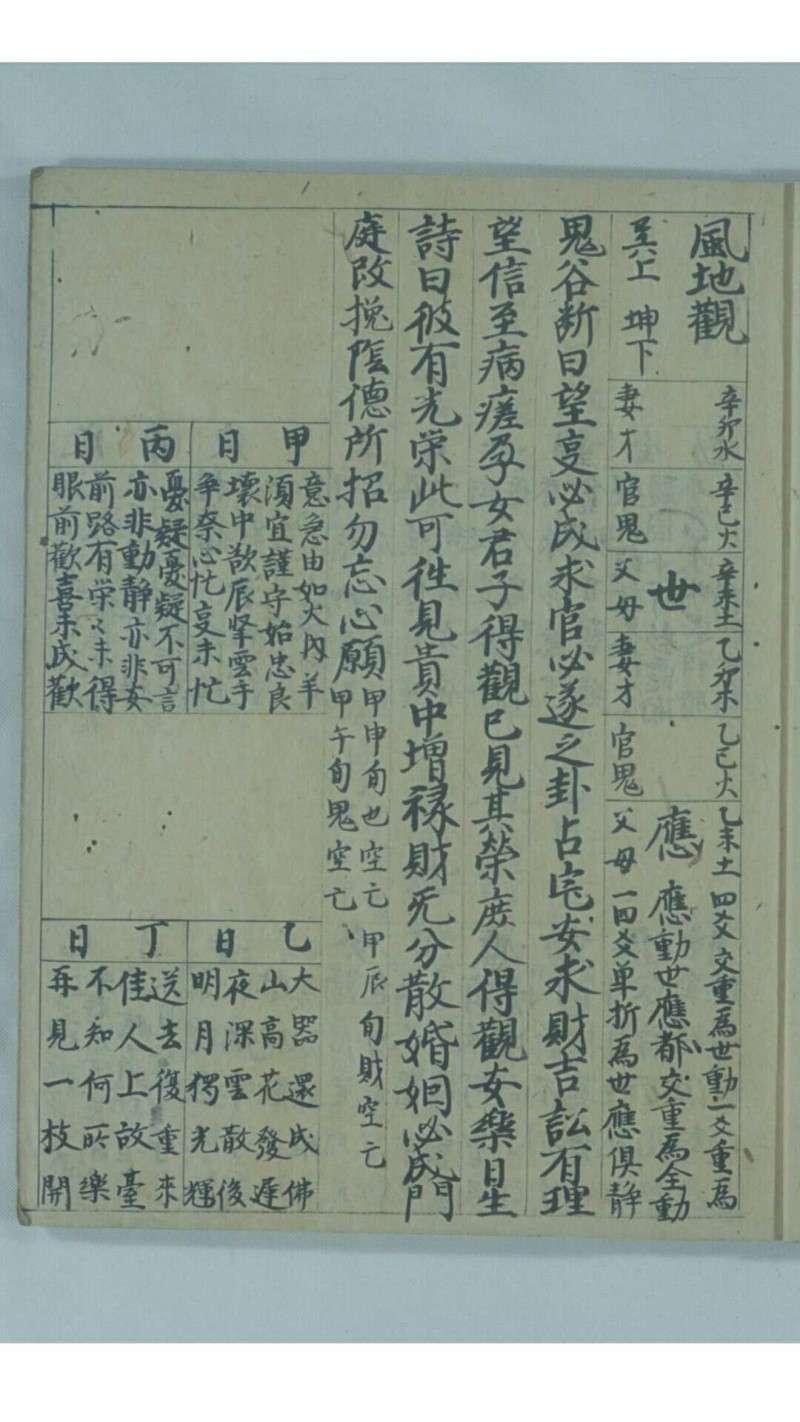 風地觀
巽上 坤下
辛卯水
妻才
辛巳火
官鬼
辛未土
世
父母
乙卯木
妻才
乙巳火
官鬼
乙未土
應
父母
四爻交重爲世動一爻重爲
應動世應都交重爲全動
一四爻单折爲世應俱静
鬼谷断曰望㕝必成求官必遂之卦占宅安求財吉訟有理
望信至病瘥孕女君子得觀已見其荣庶人得觀安樂日生
詩曰彼有光荣此可徃見貴中增禄財旡分散婚姻必成門
庭改挽陰德所招勿忘心願
甲申旬也空亡 甲辰旬財空亡
甲午旬鬼空亡
甲日
意急由如火内羊
須宜謹守始忠良
壞中欲辰擎雲手
争奈心忙㕝未忙
丙日
憂疑憂疑不可言
亦非動静亦非安
前路有荣〻未得
眼前歡喜未成歡
乙日
大器還成佛
山高花發遲
夜深雲散後
明月獨光輝
丁日
送去復重來
佳人上故臺
不知何所樂
再見一枝開